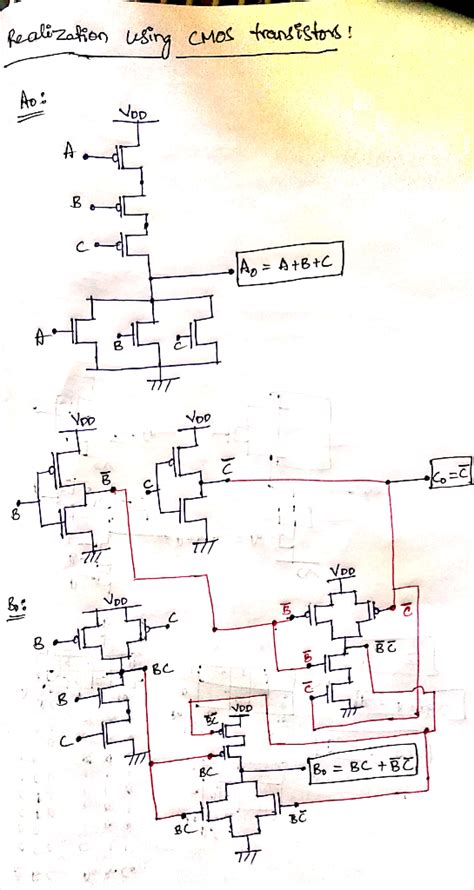 Realization using CMOS transistors!
A₀:
VDD
A
B
C
A₀ = A+B+C
A
B
C
VDD
VDD
B
B̅
C
C̅
C₀=C̅
B₀:
VDD
VDD
B
C
B̅
C̅
BC
B̅
B̅C̅
B
C̅
C
B̅C̅
VDD
BC
B₀ = BC + B̅C̅
BC
B̅C̅